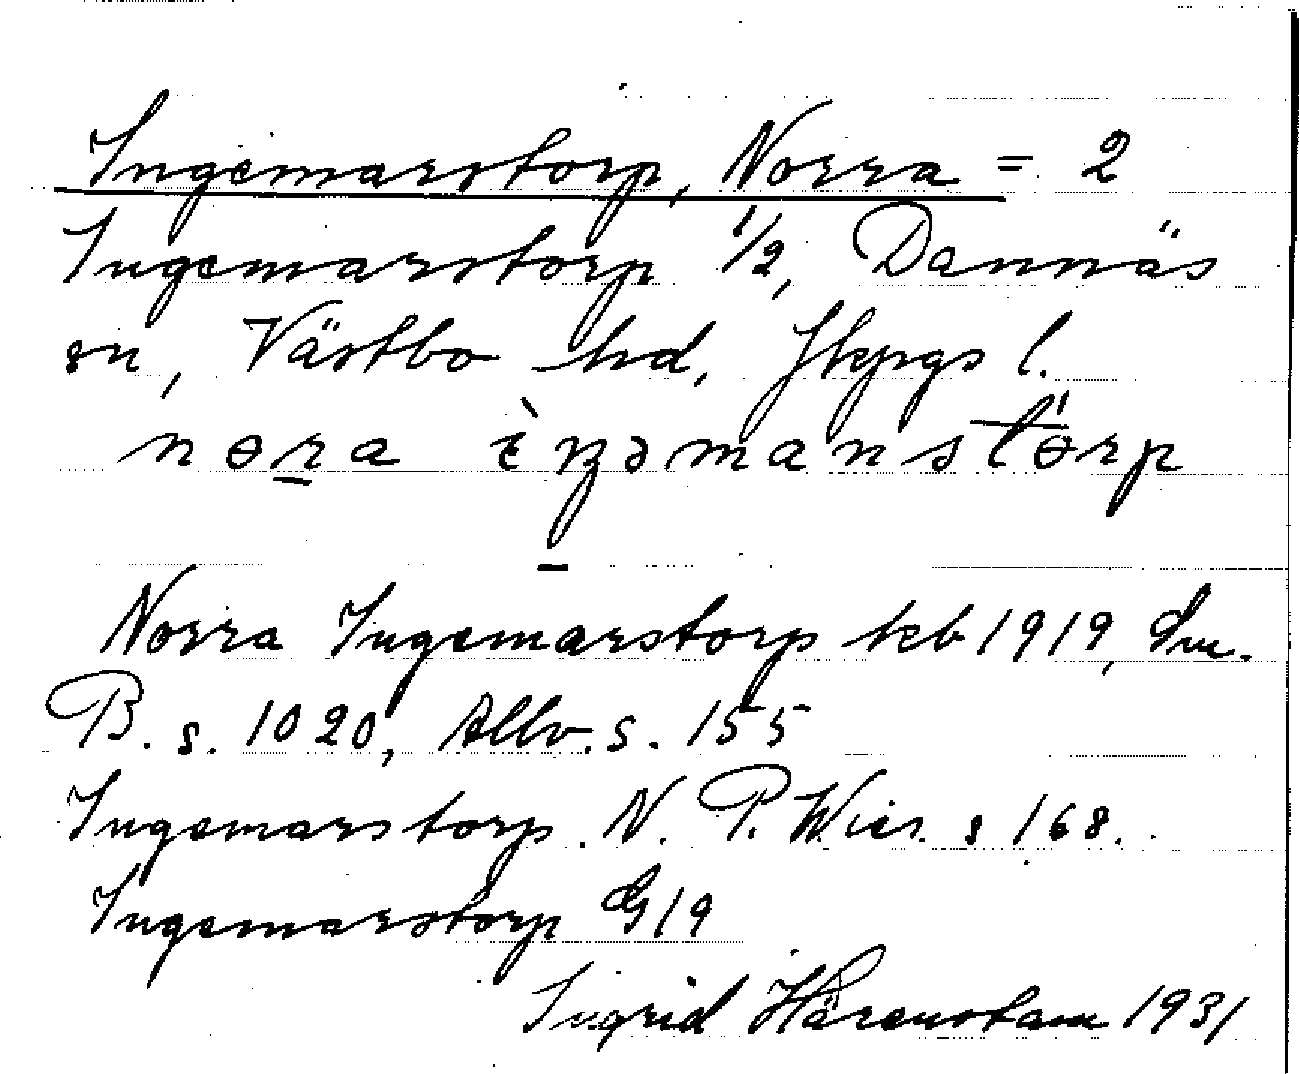 Ingemarstorp, Norra = 2
Ingemarstorp 1/2, Dannäs
sn, Västbo hd, Jkpgs l.
nɵra ìŋəmanstɵrp
Norra Ingemarstorp keb 1919, Sm.
B. s. 1020, Allv. s. 155
Ingemarstorp. N. P. Wies. s 168.
Ingemarstorp G19
Ingrid Härenstam 1931